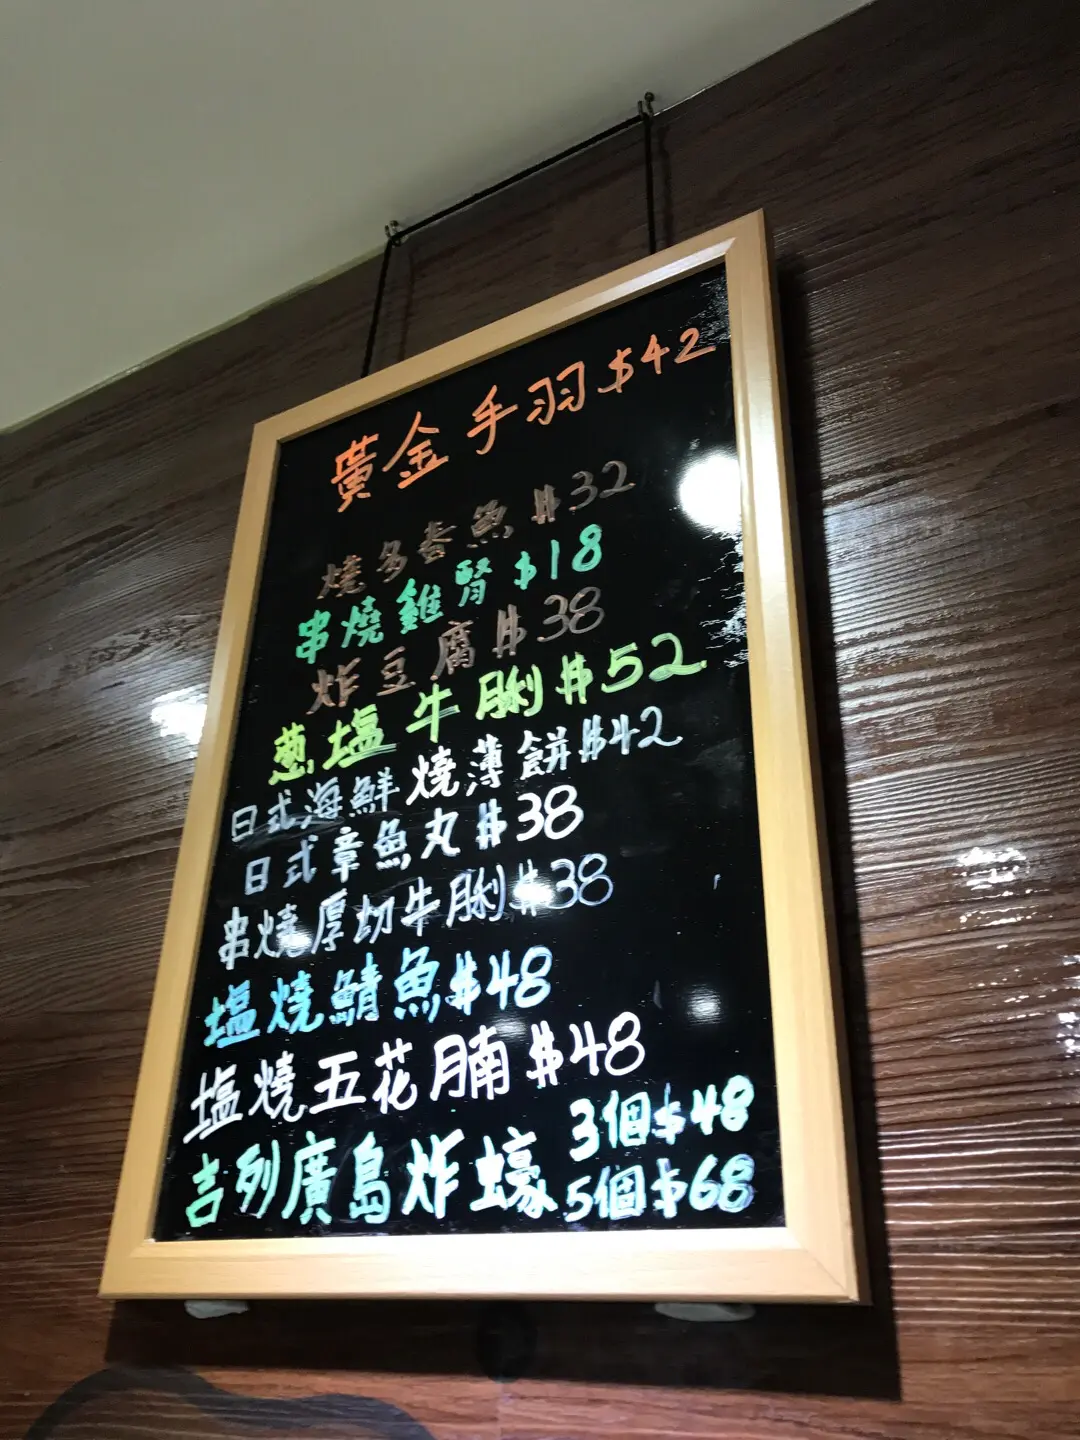 黃金手羽$42
燒多春魚$32
串燒雞腎$18
炸豆腐$38
蔥塩牛脷$52
日式海鮮燒薄餅$42
日式章魚丸$38
串燒厚切牛脷$38
塩燒鯖魚$48
塩燒五花腩$48
吉列廣島炸蠔 3個$48
5個$68